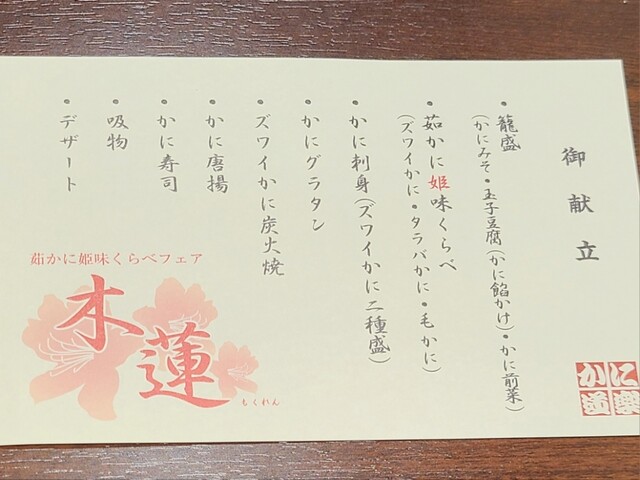 御献立
・籠盛
(かにみそ・玉子豆腐(かに餡かけ)・かに前菜)
・茹かに姫味くらべ
(ズワイかに・タラバかに・毛かに)
・かに刺身(ズワイかに二種盛)
・かにグラタン
・ズワイかに炭火焼
・かに唐揚
・かに寿司
・吸物
・デザート
茹かに姫味くらべフェア
木蓮
もくれん
かに道楽